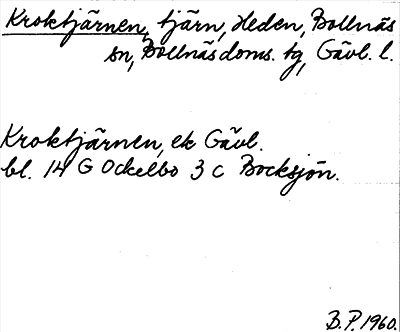 Kroktjärnen, tjärn, Heden, Bollnäs
sn, Bollnäs doms. tg, Gävl. l.
Kroktjärnen, ek Gävl.
bl. 14 G Ockelbo 3 c Bocksjön.
B.P. 1960.